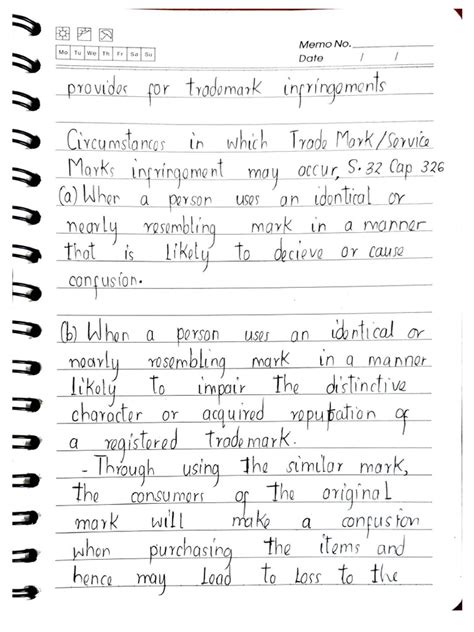 Memo No.
Mo Tu We Th Fr Sa Su
Date / /
provides for trademark infringements
Circumstances in which Trade Mark/Service
Marks infringement may occur, S.32 Cap 326
(a) When a person uses an identical or
nearly resembling mark in a manner
that is likely to decieve or cause
confusion.
(b) When a person uses an identical or
nearly resembling mark in a manner
likely to impair the distinctive
character or acquired reputation of
a registered trademark.
- Through using the similar mark,
the consumers of the original
mark will make a confusion
when purchasing the items and
hence may lead to loss to the